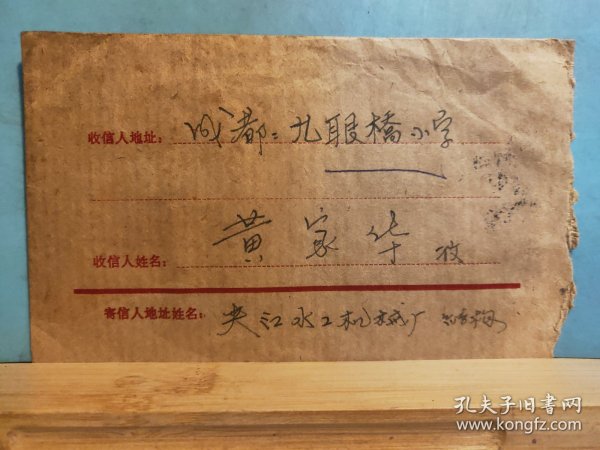 收信人地址： 成都：九眼橋小学
收信人姓名： 黄家华 收
寄信人地址姓名： 夹江水工机械厂
孔夫子旧书网
www.kongfz.com